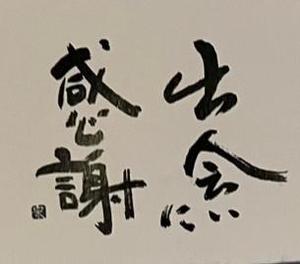 出会いに
感謝